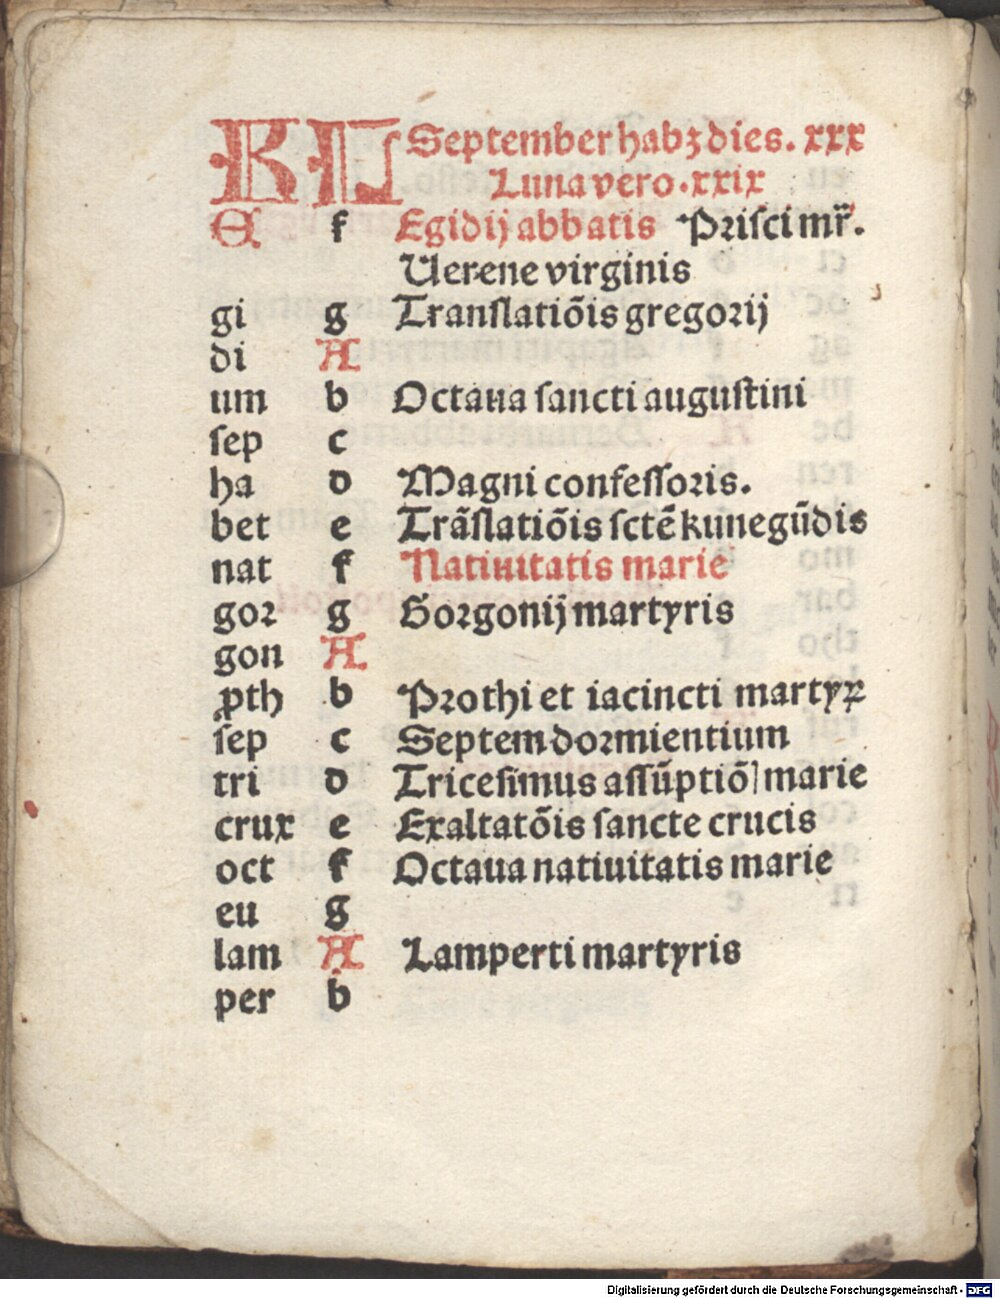 KL September habꝫ dies. xxx
Luna vero. xxix
E f Egidij abbatis Prisci mr̄.
Uerene virginis
gi g Translatiōis gregorij
di A
um b Octaua sancti augustini
sep c
ha d Magni confessoris.
bet e Trāslatiōis sctē kunegūdis
nat f Natiuitatis marie
gor g Gorgonij martyris
gon A
ꝓth b Prothi et iacincti martyꝝ
sep c Septem dormientium
tri d Tricesimus assūptiōꝭ marie
crux e Exaltatōis sancte crucis
oct f Octaua natiuitatis marie
eu g
lam A Lamperti martyris
per b
Digitalisierung gefördert durch die Deutsche Forschungsgemeinschaft - DFG